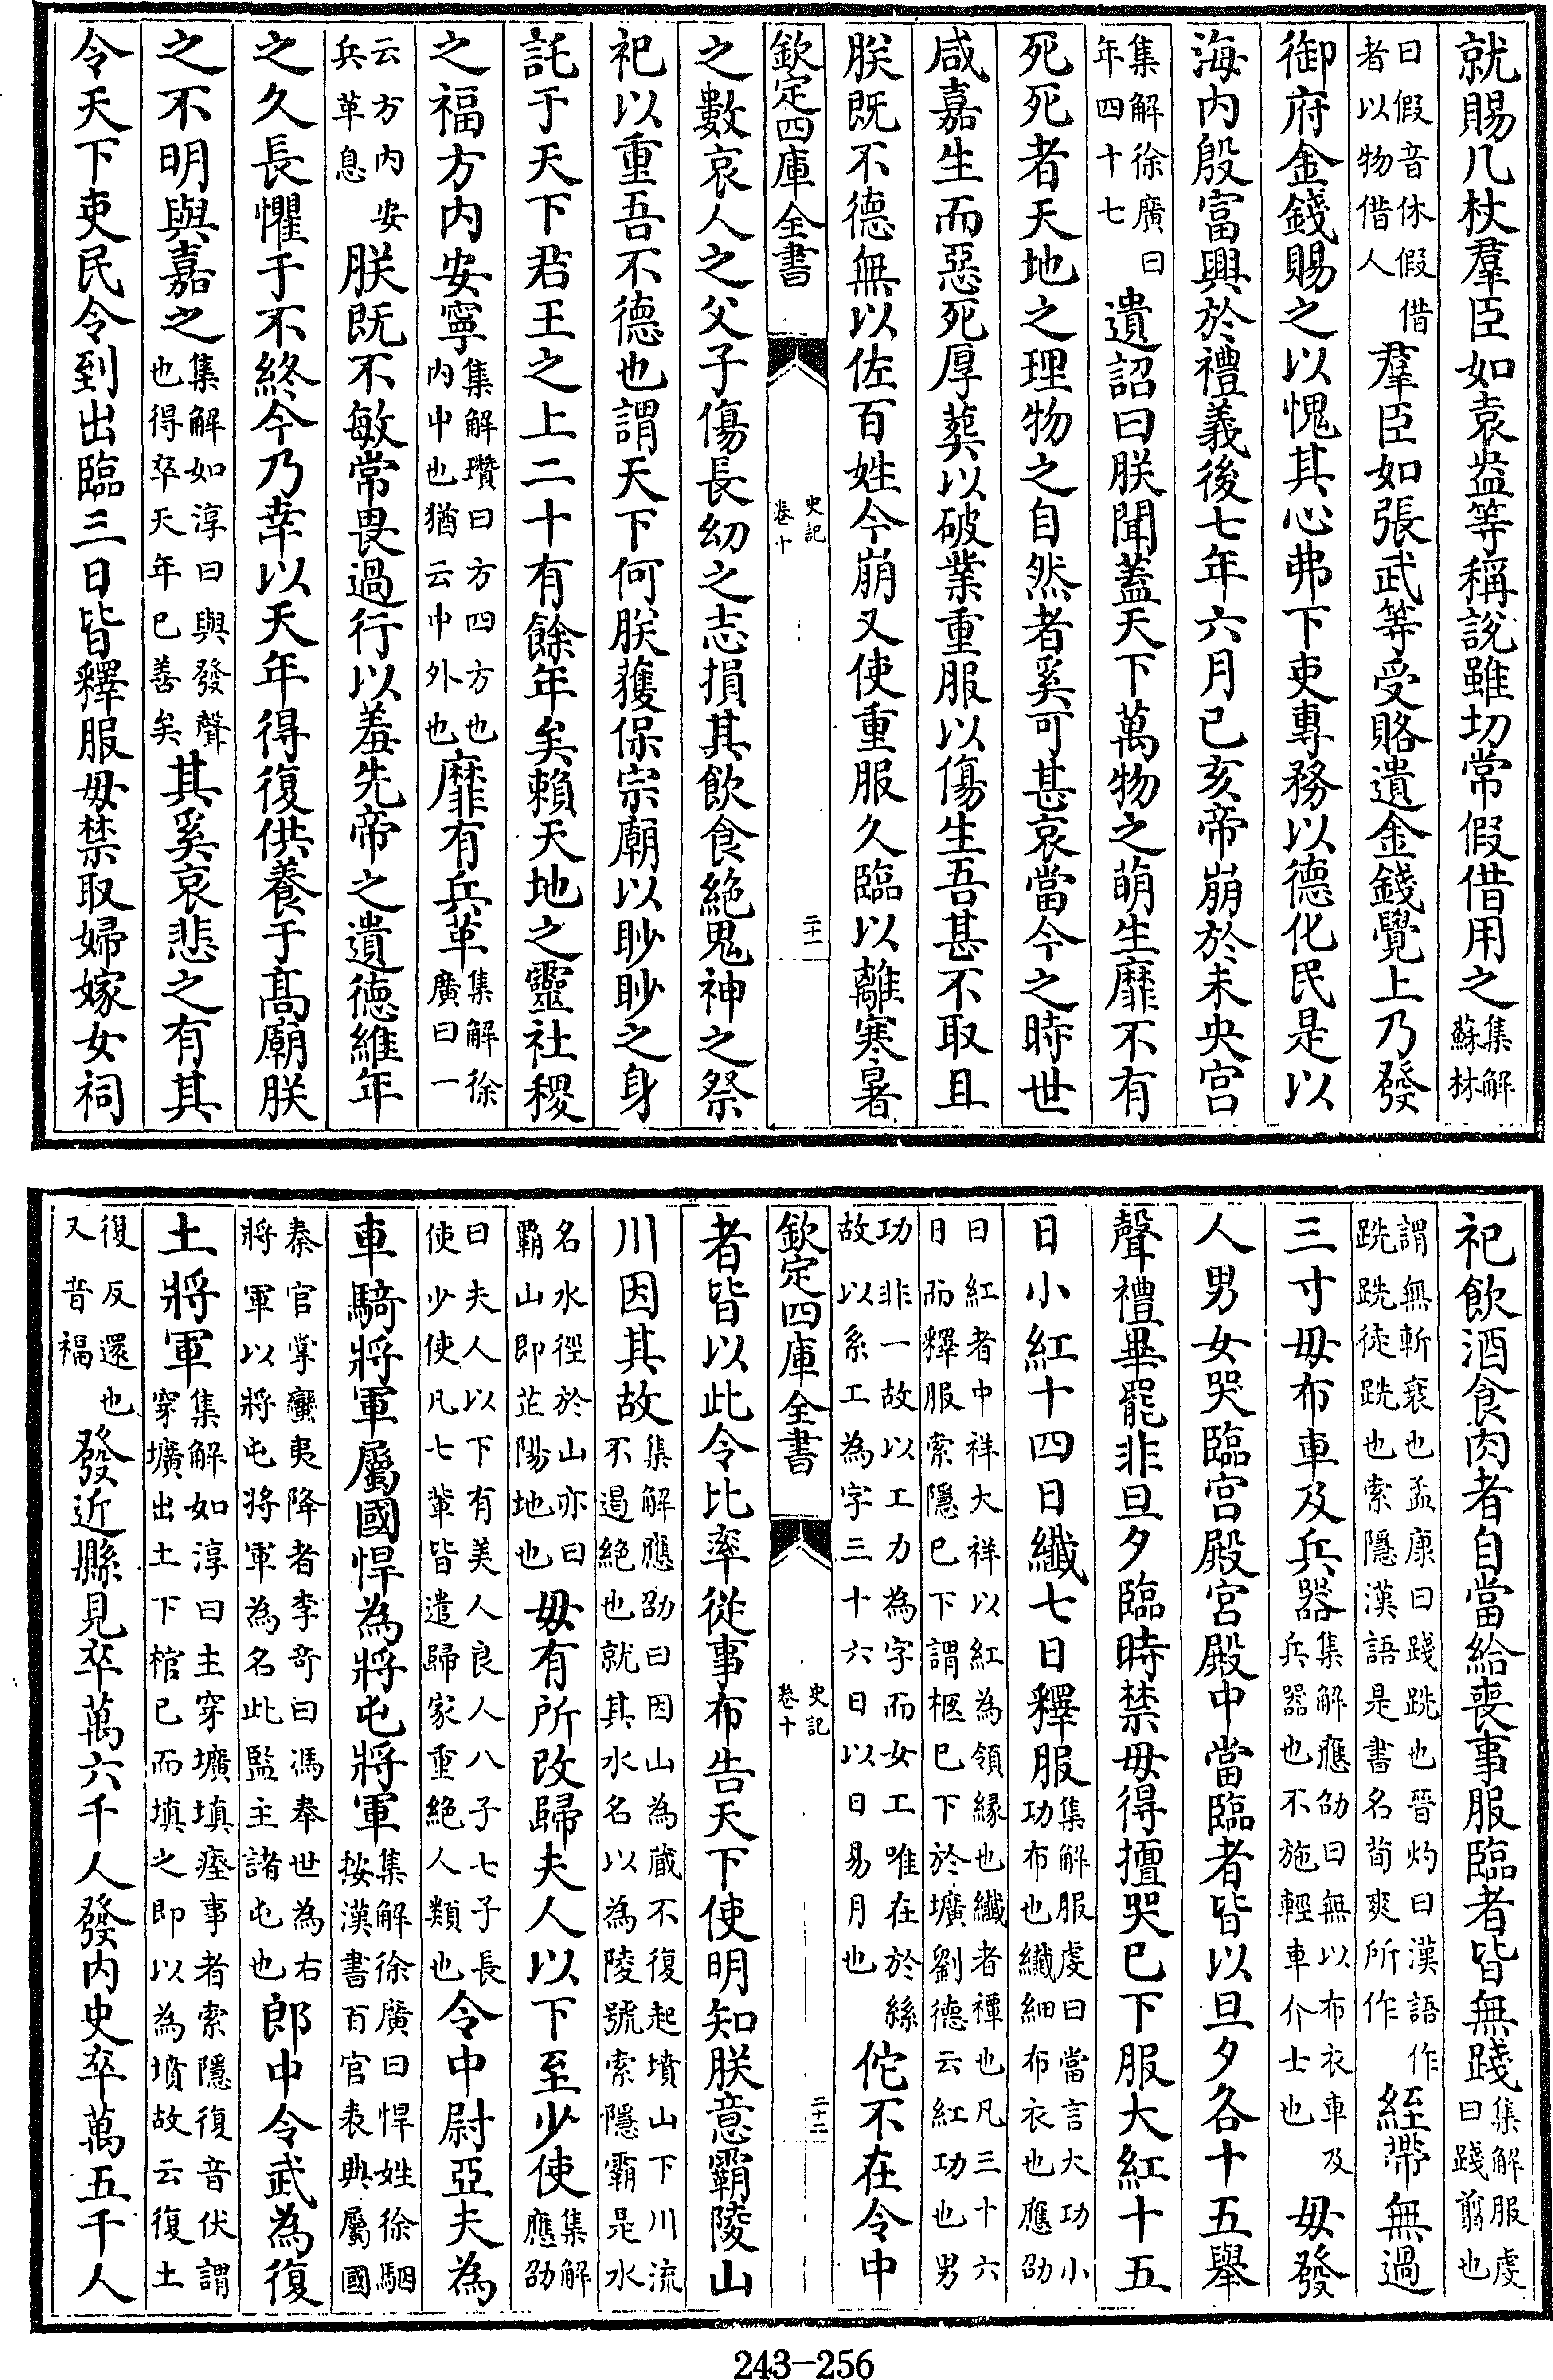 就賜几杖羣臣如袁盎等稱說雖切常假借用之集解蘇林
曰假音休假借者以物借人羣臣如張武等受賂遺金錢覺上乃發
御府金錢賜之以愧其心弗下吏專務以德化民是以
海内殷富興於禮義後七年六月已亥帝崩於未央宫
集解徐廣曰年四十七遺詔曰朕聞蓋天下萬物之萌生靡不有
死死者天地之理物之自然者奚可甚哀當今之時世
咸嘉生而惡死厚葬以破業重服以傷生吾甚不取且
朕既不德無以佐百姓今崩又使重服久臨以離寒暑
欽定四庫全書 史記卷十 二十一
之數哀人之父子傷長幼之志損其飲食絶鬼神之祭
祀以重吾不德也謂天下何朕獲保宗廟以眇眇之身
託于天下君王之上二十有餘年矣賴天地之靈社稷
之福方内安寧集解瓚曰方四方也内中也猶云中外也靡有兵革集解徐廣曰一
云方内安兵革息朕既不敏常畏過行以羞先帝之遺德維年
之久長懼于不終今乃幸以天年得復供養于髙廟朕
之不明與嘉之集解如淳曰與發聲也得卒天年已善矣其奚哀悲之有其
令天下吏民令到出臨三日皆釋服毋禁取婦嫁女祠
祀飲酒食肉者自當給喪事服臨者皆無踐集解服虔曰踐翦也
謂無斬衰也孟康曰踐跣也晉灼曰漢語作跣跣徒跣也索隱漢語是書名荀爽所作絰帶無過
三寸毋布車及兵器集解應劭曰無以布衣車及兵器也不施輕車介士也毋發
人男女哭臨宫殿宫殿中當臨者皆以旦夕各十五舉
聲禮畢罷非旦夕臨時禁毋得擅哭已下服大紅十五
日小紅十四日纎七日釋服集解服虔曰當言大功小功布也纎細布衣也應劭
曰紅者中祥大祥以紅為領緣也纎者禫也凡三十六日而釋服索隱已下謂柩已下於壙劉德云紅功也男
功非一故以工力為字而女工唯在於絲故以系工為字三十六日以日易月也佗不在令中
欽定四庫全書 史記卷十 二十二
者皆以此令比率從事布告天下使明知朕意霸陵山
川因其故集解應劭曰因山為藏不復起墳山下川流不遏絶也就其水名以為陵號索隱霸是水
名水徑於山亦曰霸山即芷陽地也毋有所改歸夫人以下至少使集解應劭
曰夫人以下有美人良人八子七子長使少使凡七輩皆遣歸家重絶人類也令中尉亞夫為
車騎將軍屬國悍為將屯將軍集解徐廣曰悍姓徐駰按漢書百官表典屬國
秦官掌蠻夷降者李竒曰馮奉世為右將軍以將屯將軍為名此監主諸屯也郎中令武為復
土將軍集解如淳曰主穿壙填瘞事者索隱復音伏謂穿壙出土下棺已而填之即以為墳故云復土
復反還也又音福發近縣見卒萬六千人發内史卒萬五千人
243-256